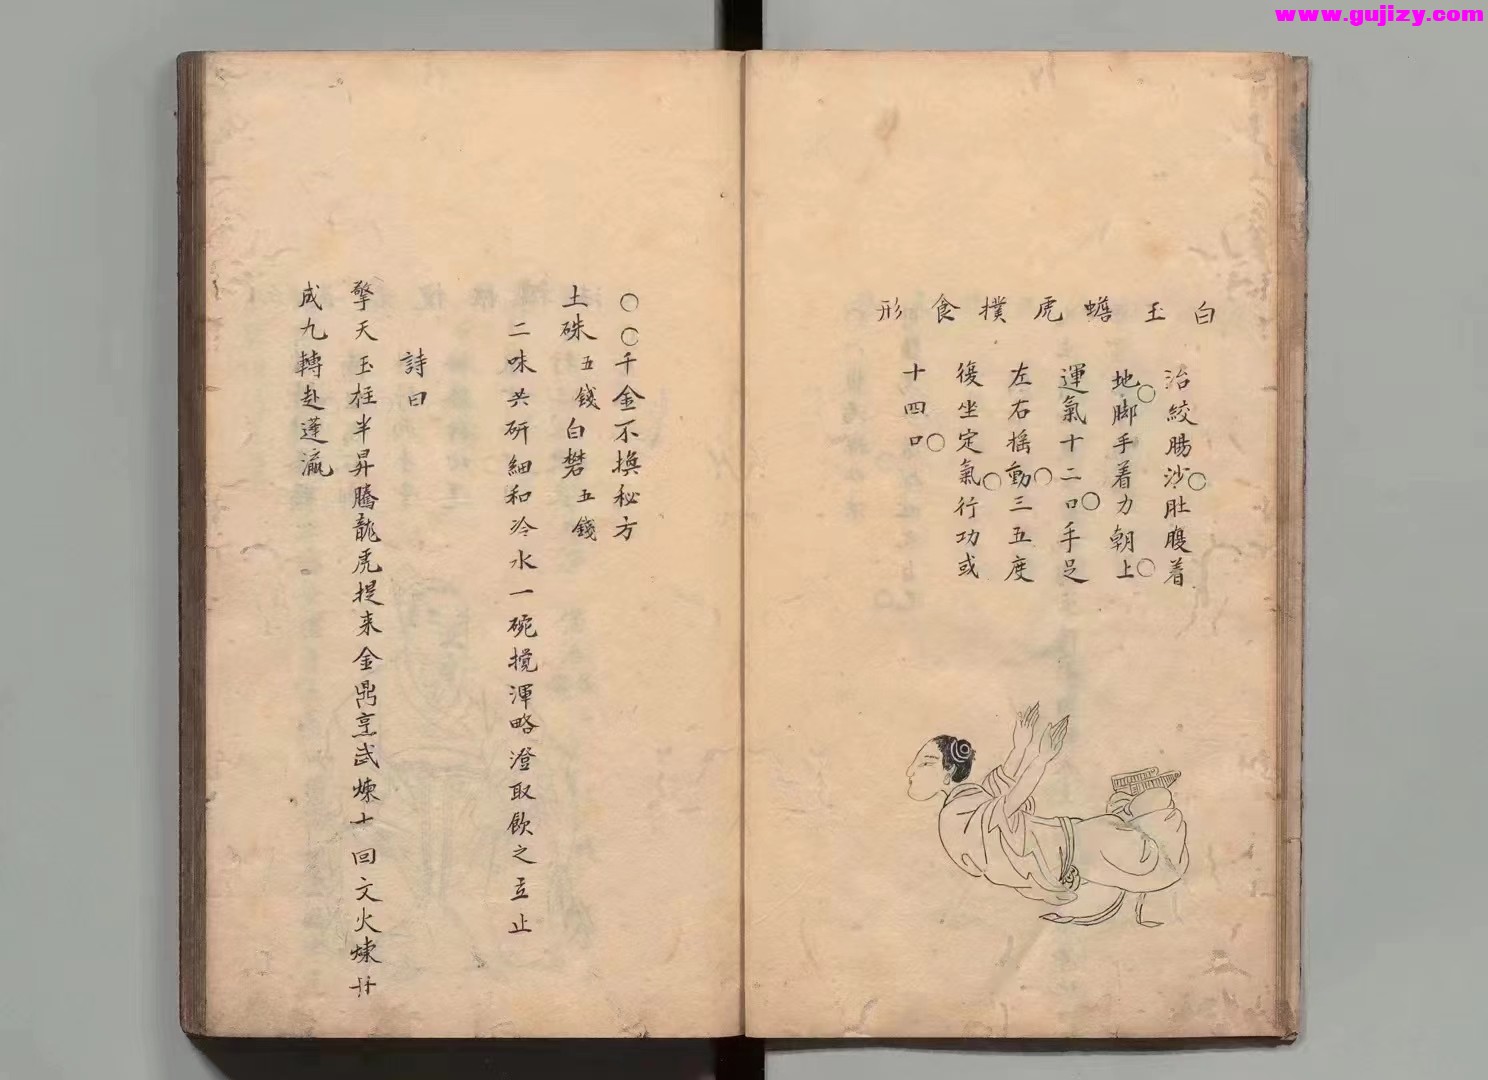 www.gujizy.com
白玉蟾虎撲食形
治絞腸沙○肚腹着
地○脚手着力朝上○
運氣十二口○手足
左右摇動○三五度
後坐定氣○行功或
十四口○
○○千金不換秘方
土硃五錢白礬五錢
二味共研細和冷水一碗攪渾略澄取飲之立止
詩曰
擎天玉柱半昇騰龍虎提来金鼎烹武煉十回文火煉廿
成九轉赴蓬瀛